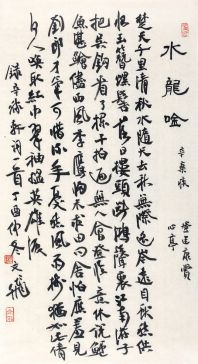 水龍吟
辛棄疾
登建康賞
心亭
楚天千里清秋水隨天去秋無際遙岑遠目獻愁供
恨玉簪螺髻落日樓頭斷鴻聲裏江南遊子
把吳鉤看了欄干拍遍無人會登臨意休說鱸
魚堪鱠盡西風季鷹歸未求田問舍怕應羞見
劉郎才氣可惜流年憂愁風雨樹猶如此倩
何人喚取紅巾翠袖搵英雄淚
錄辛稼軒詞一首丁酉仲冬文飛